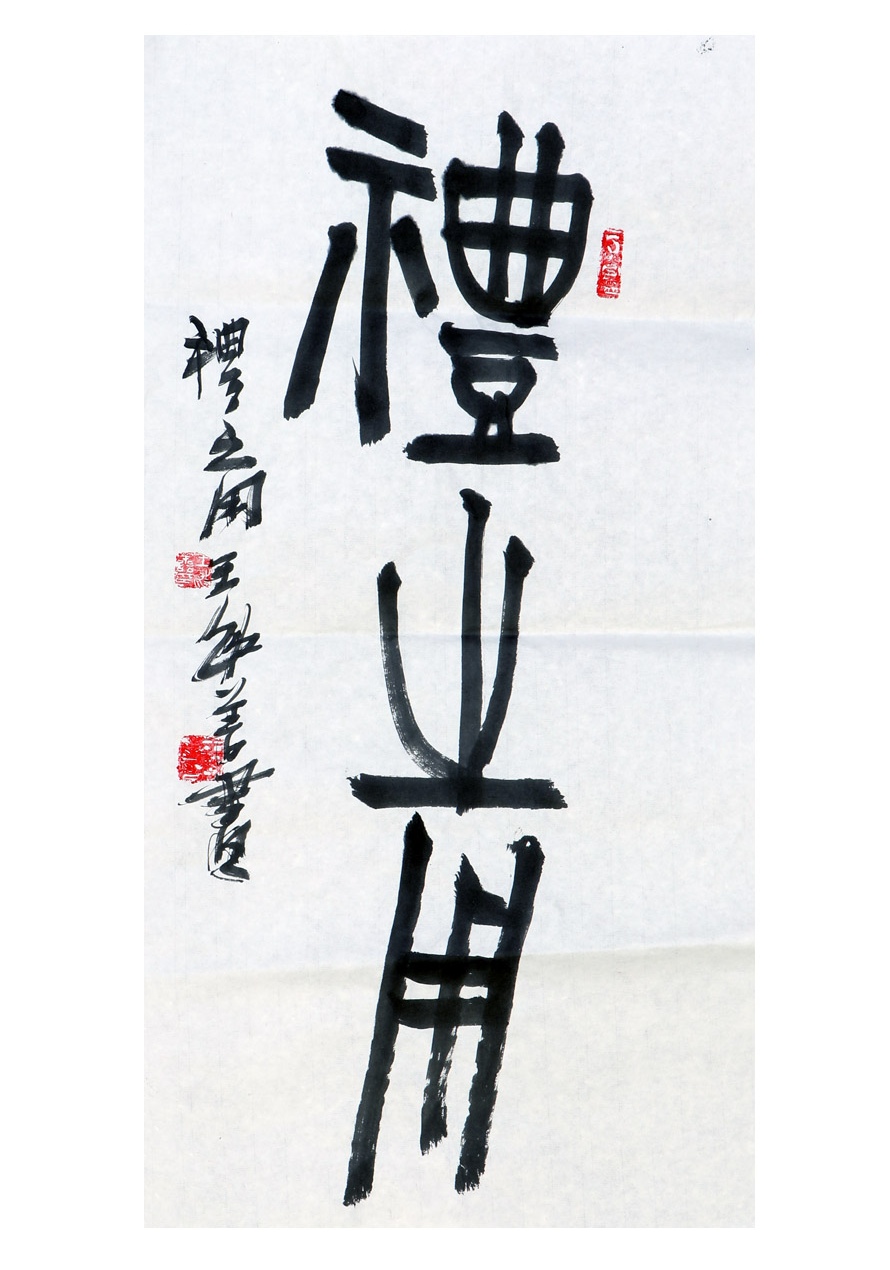 禮之用
禮之用 王 善書